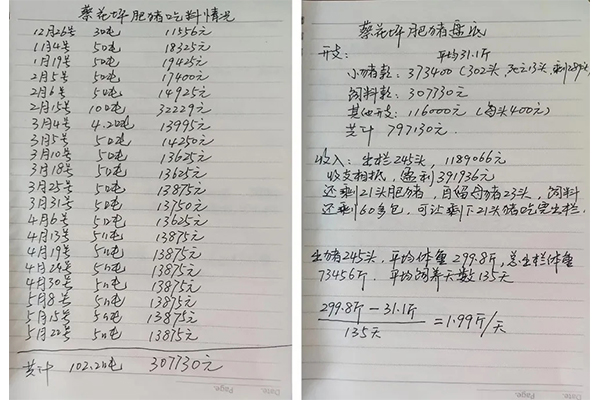 蔡花坪肥猪吃料情况
12月26号 30吨 11556元
1月4号 50吨 18325元
1月19号 50吨 19425元
2月5号 50吨 17400元
2月6号 50吨 14925元
2月15号 100吨 32229元
3月4号 4.20吨 13995元
3月5号 50吨 14250元
3月10号 50吨 13625元
3月18号 50吨 13625元
3月25号 50吨 13875元
3月31号 50吨 13750元
4月6号 50吨 13625元
4月13号 50吨 13875元
4月19号 50吨 13875元
4月24号 50吨 13875元
4月30号 50吨 13875元
5月8号 50吨 13875元
5月15号 50吨 13875元
5月22号 50吨 13875元
共计 102.20吨 307730元
蔡花坪肥猪盘底
开支： 平均31.1斤
小猪款：373400（302头，死亡13头，剩289头）
饲料款：307730元
其他开支：116000元（每头400元）
共计 797130元.
收入：出栏245头，1189066元
收支相抵，盈利391936元
还剩21头肥猪，自留母猪23头，饲料
还剩60多包，可让剩下21头猪吃完出栏.
出猪245头，平均体重299.8斤，总出栏体重
73456斤.平均饲养天数135天
299.8斤－31.1斤
135天
=1.99斤/天
Date. Page.